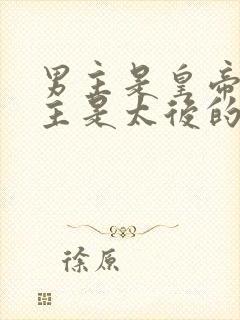 男主是皇帝
主是太後的
徐原